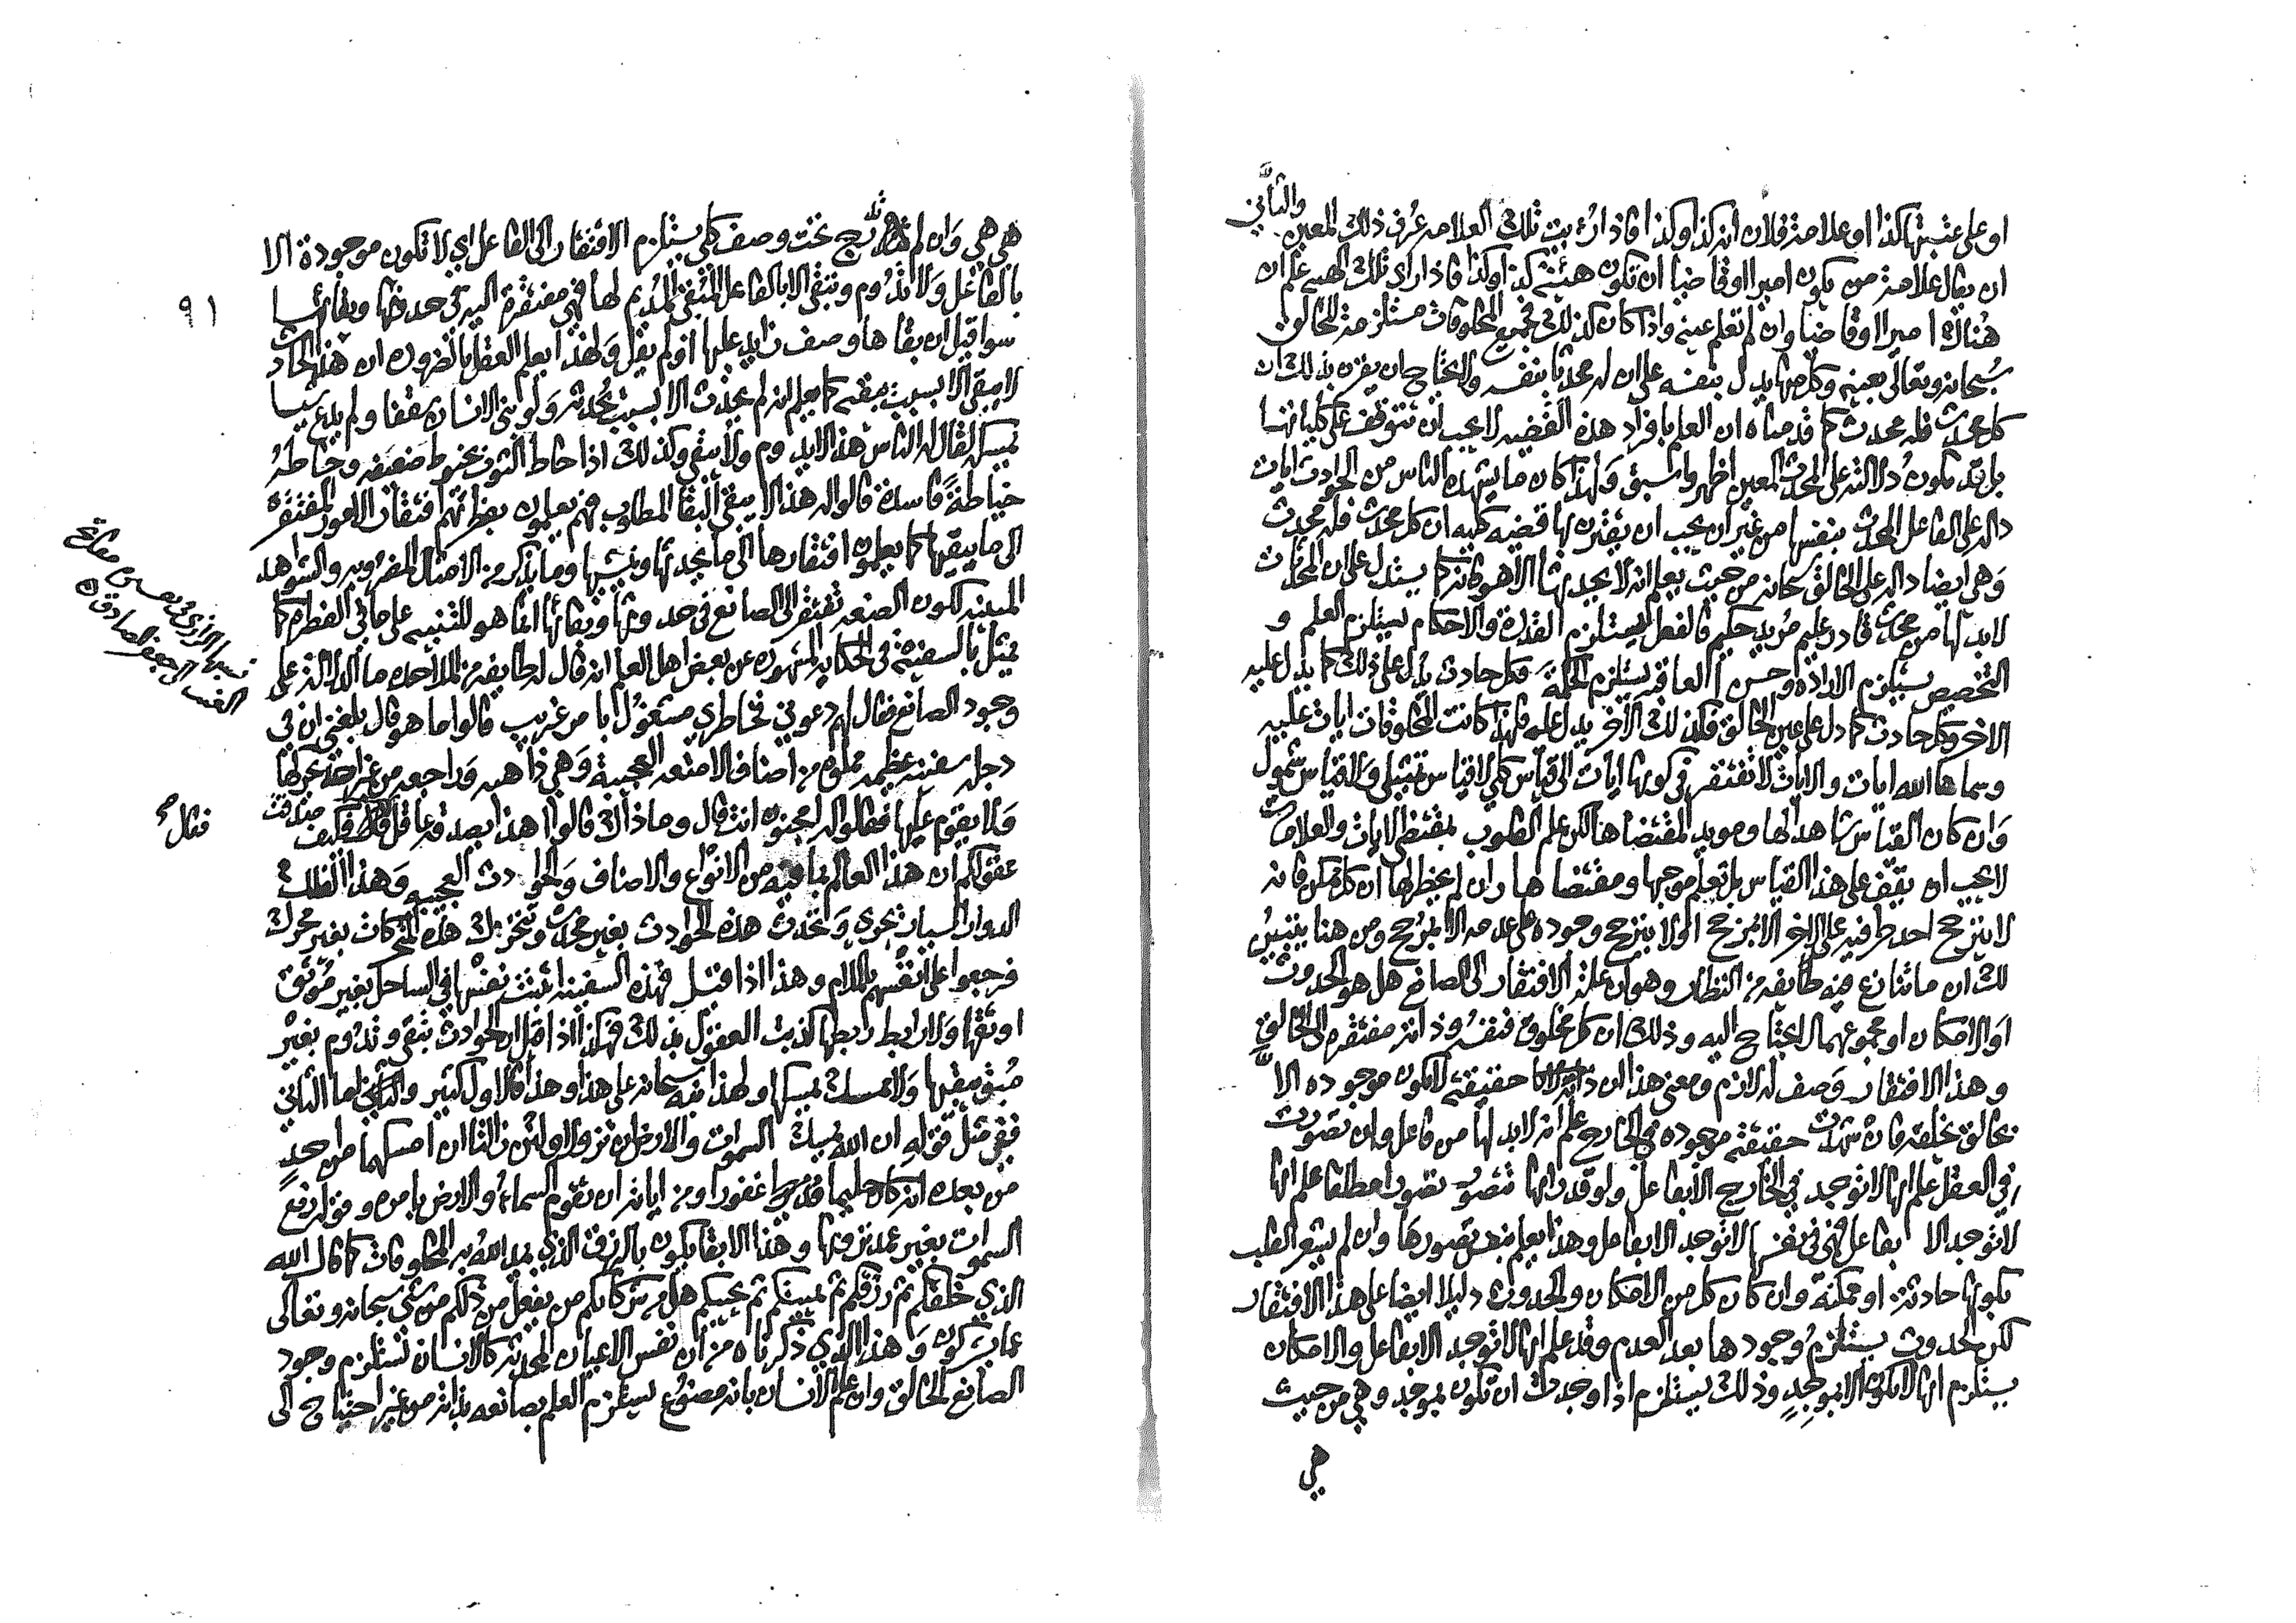 او على عتبتها كذا او علامة فلان انه كذا وكذا فاذا رُئيت تلك العلامة عُرف ذلك المعين والثاني
ان يقال علامة من يكون اميرا او قاضيا ان تكون هيئته كذا وكذا فاذا راى تلك الهيه علم ان
هناك اميرا او قاضيا وان لم تعلم عينه واذا كان كذلك فجميع المخلوقات مستلزمة للخالق
سُبحانه وتعالى بعينه وكل منها يدل بنفسه على ان له محدثا بنفسه ولا يحتاج ان يقرن بذلك ان
كل محدث فله محدث كما قدمناه ان العلم بافراد هذه القضيه لا يجب ان تتوقف على كلياتها
بل قد تكون دلالته على المحدث المعين اظهر واسبق ولهذا كان ما يشهده الناس من الحوادث ايات
دالة على الفاعل المحدث بنفسها من غير ان يجب ان يقترن بها قضيه كليه ان كل محدث فله محدث
وهي ايضا داله على الخالق سبحانه من حيث يعلم انه لا يحدثها الا هو فانه كما يستدل على ان المحدثات
لابد لها من محدث قادر عليم مريد حكيم فالفعل يستلزم القدرة والاحكام يستلزم العلم و
التخصيص يستلزم الارادة وحسن العاقبه يستلزم الحكمة وكل حادث يدل على ذلك كما يدل عليه
الاخر وكل حادث كما دل على عين الخالق فكذلك الاخر يدل عليه فلهذا كانت المخلوقات ايات عليه
وسماها الله ايات والايات لا تفتقر في كونها ايات الى قياس كلي لا قياس تمثيلي ولا قياس شمول
وان كان القياس شاهدا لها ومويدا لمقتضاها لكن علم القلوب بمقتضى الايات والعلامات
لا يجب ان يقف على هذا القياس بل تعلم موجبها ومقتضاها وان لم يخطر لها ان كل ممكن فانه
لا يترجح احد طرفيه على الاخر الا بمرجح او لا يترجح وجوده على عدمه الا بمرجح ومن هنا يتبين
لك ان ما تنازع فيه طايفه من النظار وهو ان علة الافتقار الى الصانع هل هو الحدوث
او الامكان او مجموعهما لا يحتاج اليه وذلك ان كل مخلوق فنفسه وذاته مفتقره الى الخالق
وهذا الافتقار وصف له لازم ومعنى هذا ان حقيقته لا تكون موجوده الا
بخالق يخلقه فان شهدت حقيقته موجوده في الخارج علم انه لابد لها من فاعل وان تصورت
في العقل علم انها لا توجد في الخارج الا بفاعل ولو قدر انها تتصور تصورا مطلقا علم انها
لا توجد الا بفاعل فهي في نفسها لا توجد الا بفاعل وهذا يعلم بنفس تصورها وان لم يشعر القلب
بكونها حادثة او ممكنة وان كان كل من الامكان والحدوث دليلا ايضا على هذا الافتقار
لكن الحدوث يستلزم وجودها بعد العدم وقد علم انها لا توجد الا بفاعل والامكان
يستلزم انها لا تكون الا بموجد وذلك يستلزم اذا وجدت ان تكون بموجد وهي من حيث
هي
هي هي وان لم تدرج تحت وصف كلي يستلزم الافتقار الى الفاعل اي لا تكون موجودة الا
بالفاعل ولا تدوم وتبقى الا بالفاعل المبقي المديم لها فهي مفتقرة اليه في حدوثها وبقائها
سوا قيل ان بقاها وصف زايد عليها او لم يقل ولهذا يعلم العقل بالضروره ان هذا الحادث
لا يبقى الا بسبب يبقيه كما يعلم انه لم يحدث الا بسبب يحدثه ولو بنى الانسان سقفا ولم يدع شيا
يمسكه لقال له الناس هذا لا يدوم ولا يبقى وكذلك اذا خاط الثوب بخيوط ضعيفه وخاطهُ
خياطةً فاسدة قالوا له هذا لا يبقى البقا المطلوب فهم يعلمون بفطرتهم افتقار الامور المفتقره
الى ما يبقيها كما يعلمون افتقارها الى ما يحدثها وينشيها وما يذكر من الامثال المضروبه والشواهد
المبينه لكون الصنعه تفتقر الى الصانع في حدوثها وبقائها انما هو للتنبيه على ما في الفطره كما
يمثل بالسفينة في الحكايه المشهوره عن بعض اهل العلم انه قال له طايفه من الملاحده ما الدلاله على
وجود الصانع فقال لهم دعوني فخاطري مشغول بامر غريب قالوا ما هو قال بلغني ان في
دجله سفينه عظيمه مملوه من اصناف الامتعه العجيبة وهي ذاهبه وراجعه من غير احد يحركها
ولا يقوم عليها فقالوا له امجنون انت قال وما ذاك قالوا هذا يصدقه عاقل فقال فكيف صدقت
عقولكم ان هذا العالم بما فيه من الانواع والاصناف والحوادث العجيبه وهذا الفلك
الدوار السيار يجري وتحدث هذه الحوادث بغير محدث وتتحرك هذه المتحركات بغير محرك
فرجعوا على انفسهم بالملام وهذا اذا قيل فهذه السفينه اثبتت نفسها في الساحل بغير موثق
اوثقها ولا رابط ربطها كذبت العقول بذلك فهكذا اذا قيل ان الحوادث تبقى وتدوم بغير
مبق يبقيها ولا ممسك يمسكها ولهذا نبه سبحانه على هذا وهذا فالاول كثير والثاني اما الثاني
ففي مثل قوله ان الله يمسك السموات والارض ان تزولا ولئن زالتا ان امسكهما من احدٍ
من بعده انه كان حليما غفورا ومن اياته ان تقوم السماء والارض بامره وقوله رفع
السموات بغير عمد ترونها وهذا الابقا يكون بالرزق الذي يمد الله به المخلوقات كما قال الله
الذي خلقكم ثم رزقكم ثم يميتكم ثم يحييكم هل من شركائكم من يفعل من ذلكم من شي سبحانه وتعالى
عما يشركون وهذا الذي ذكرناه من ان نفس الاعيان المحدثه كالانسان تستلزم وجود
الصانع الخالق وان علم الانسان بانه مصنوع يستلزم العلم بصانعه بذاته من غير احتياج الى
٩١
نسبها الرازي في تفسيره
الى جعفر الصادق
فقال